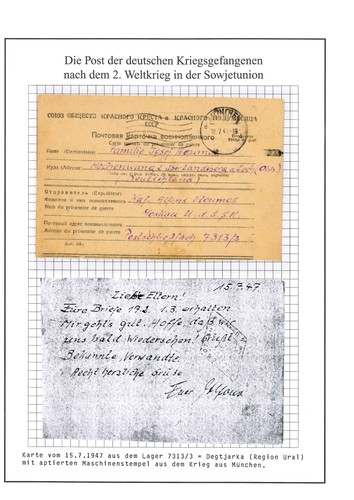 Die Post der deutschen Kriegsgefangenen
nach dem 2. Weltkrieg in der Sowjetunion
СОЮЗ ОБЩЕСТВ КРАСНОГО КРЕСТА и КРАСНОГО ПОЛУМЕСЯЦА
СССР
Почтовая карточка военнопленного
Carte postale du prisonnier de guerre
Кому (Destinataire) Familie Josef
Куда (Adresse)
(Deutschland)
Отправитель (Expéditeur)
Фамилия и имя военнопленного
Nom du prisonnier de guerre
Moskau U.d.S.S.R.
Почтовый адрес военнопленного
Adresse du prisonnier de guerre Postschließfach 7313/3
15.7.47
Liebe Eltern!
Eure Briefe 19.2. 1.3. erhalten.
Mir gehts gut. Hoffe, daß wir
uns bald Wiedersehen! Grüßt
Bekannte, Verwandte.
Recht herzliche Grüße
Euer Alfons
Karte vom 15.7.1947 aus dem Lager 7313/3 * Degtjarka (Region Ural)
mit aptierten Maschinenstempel aus dem Krieg aus München.